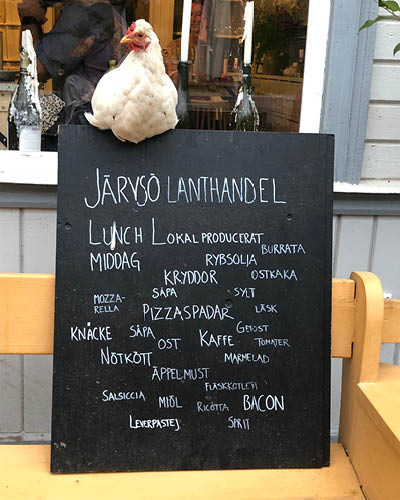 JÄRVSÖ LANTHANDEL
LUNCH LOKALPRODUCERAT
MIDDAG RYBSOLJA BURRATA
KRYDDOR OSTKAKA
MOZZA-
RELLA
SÅPA SYLT
PIZZASPADAR LÄSK
KNÄCKE SÅPA OST KAFFE GETOST
TOMATER
NÖTKÖTT MARMELAD
ÄPPELMUST
FLÄSKKOTLETT
SALSICCIA MJÖL RICOTTA BACON
LEVERPASTEJ SPRIT